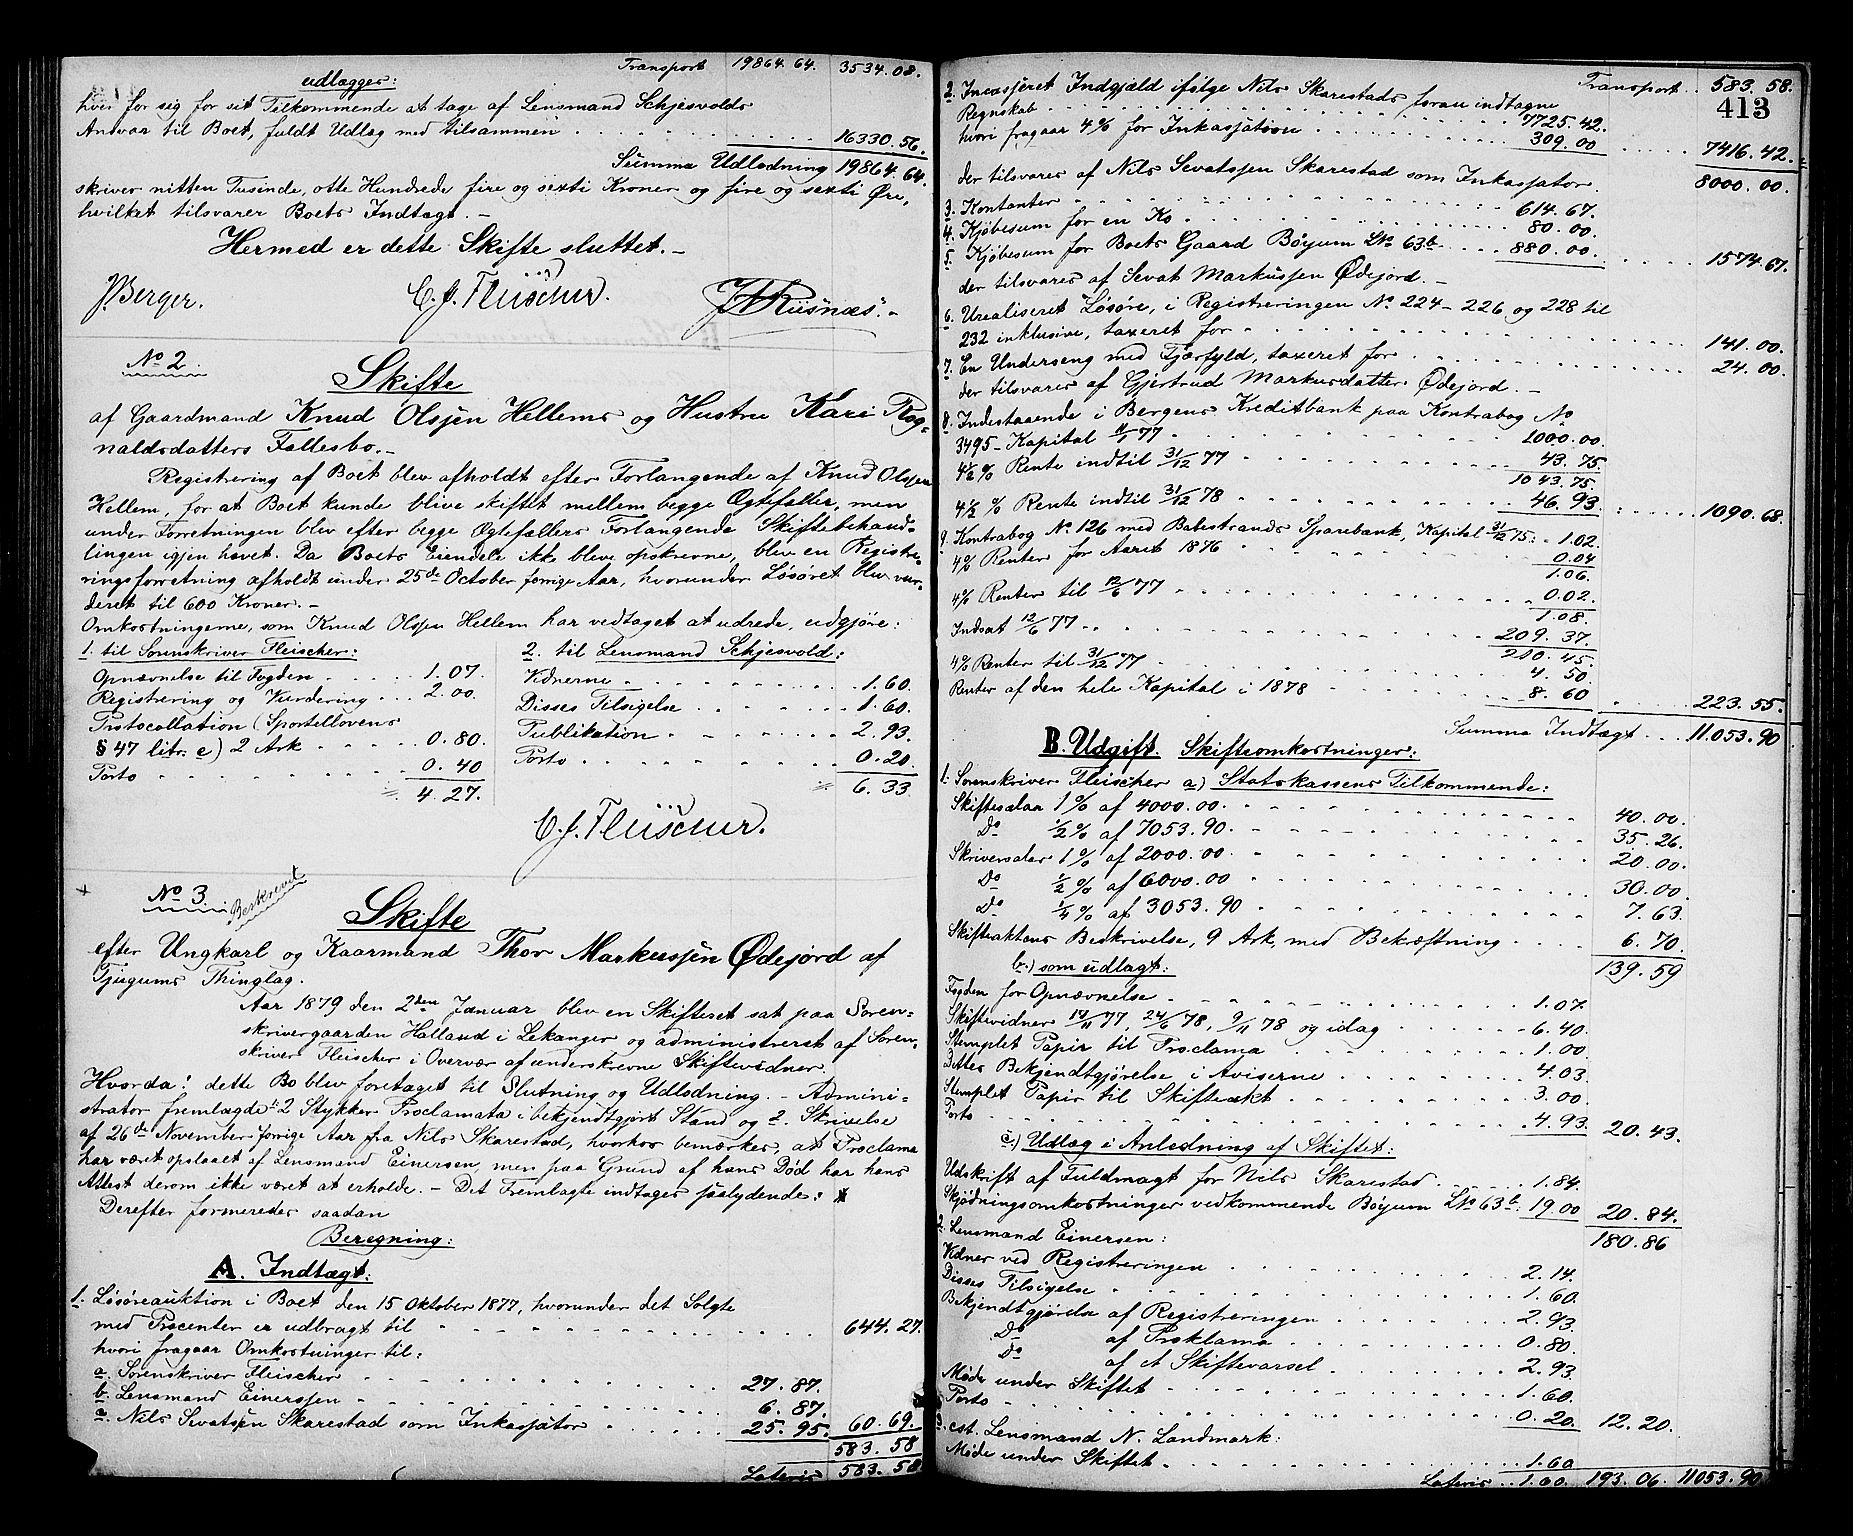 Transport 19864.64. 3534.08.
udlægges:
hver for sig for sit Tilkommende at tage af Lensmand Schjesvolds
Ansvar til Boet, fuldt Udlag med tilsammen . . . 16330.56.
Summa Udlodning 19864.64.
skriver nitten Tusinde, otte Hundrede fire og sexti Kroner og fire og sexti Øre,
hvilket tilsvarer Boets Indtægt. –
Hermed er dette Skifte sluttet. –
J. Berger. C. J. Fleischer. Riisnæs. –
No 2.
Skifte
af Gaardmand Knud Olsen Hellems og Hustru Kari Rog-
naldsdatters Fællesbo. –
Registrering af Boet blev afholdt efter Forlangende af Knud Olsen
Hellem, for at Boet kunde blive skiftet mellem begge Ægtefæller, men
under Forretningen blev efter begge Ægtefællers Forlangende Skiftebehand-
lingen igjen hævet. Da Boets Eiendele ikke bleve opskrevne, blev en Registre-
ringsforretning afholdt under 25de October forrige Aar, hvorunder Løsøret blev vur-
deret til 600 Kroner. –
Omkostningerne, som Knud Olsen Hellem har vedtaget at udrede, udgjøre:
1. til Sorenskriver Fleischer:
Opnævnelse til Fogden . . . 1.07.
Registrering og Vurdering . . . 2.00.
Protocollation (Sportellovens
§ 47 litr. e) 2 Ark . . . 0.80.
Porto . . . 0.40
4.27.
2. til Lensmand Schjesvold:
Vidnerne . . . 1.60.
Disses Tilsigelse . . . 1.60.
Publikation . . . 2.93.
Porto . . . 0.20.
6.33
C. J. Fleischer.
No 3. Beskrevet
Skifte
efter Ungkarl og Kaarmand Thor Markussen Ødejord af
Tjugums Thinglag.
Aar 1879 den 2den Januar blev en Skifteret sat paa Soren-
skrivergaarden Halland i Lekanger og administreret af Soren-
skriver Fleischer i Overvær af underskrevne Skiftevidner.
Hvorda! dette Bo blev foretaget til Slutning og Udlodning. – Admini-
strator fremlagde: 2 Stykker Proclamata i bekjendtgjort Stand og 2. Skrivelse
af 26de November forrige Aar fra Nils Skarestad, hvorhos bemærkes, at Proclama
har været opslaaet af Lensmand Einersen, men paa Grund af hans Død har hans
Attest derom ikke været at erholde. – Det Fremlagte indtages saalydende:
Derefter formeredes saadan
Beregning:
A. Indtægt:
1. Løsøreauktion i Boet den 15 Oktober 1877, hvorunder det Solgte
med Procenter er udbragt til . . . 644.27.
hvori fragaar Omkostninger til:
a. Sorenskriver Fleischer . . . 27.87.
b. Lensmand Einersen . . . 6.87.
c. Nils Sevatsen Skarestad som Inkassator . . . 25.95. 60.69.
583.58
Lateris 583.58
413
Transport . . 583.58.
2. Incasseret Indgjæld ifølge Nils Skarestads foran indtagne
Regnskab . . . 7725.42.
hvori fragaar 4 % for Inkassation . . . 309.00 . . . 7416.42.
der tilsvares af Nils Sevatsen Skarestad som Inkassator. 8000.00.
3. Kontanter . . . 614.67.
4. Kjøbesum for en Ko . . . 80.00.
5. Kjøbesum for Boets Gaard Böyum LNo 63b . . . 880.00. . . . 1574.67.
der tilsvares af Sevat Markussen Ødejord. –
6. Urealiseret Løsøre, i Registreringen No 224 – 226 og 228 til
232 inklusive, taxeret for . . . 141.00.
7. En Underseng med Fjærfyld, taxeret for . . . 24.00.
der tilsvares af Gjertrud Markusdatter Ødejord. –
8. Indestaaende i Bergens Kreditbank paa Kontrabog No
3495 – Kapital 11/1 77 . . . 1000.00.
4½ % Rente indtil 31/12 77 . . . 43.75.
1043.75.
4½ % Rente indtil 31/12 78 . . . 46.93. . . . 1090.68.
9. Kontrabog No 126 med Balestrands Sparebank, Kapital 31/12 75: 1.02.
4 % Renter for Aaret 1876 . . . 0.04
1.06.
4 % Renter til 12/6 77 . . . 0.02.
1.08.
Indsat 12/6 77 . . . 209.37.
210.45.
4 % Renter til 31/12 77 . . . 4.50.
Renter af den hele Kapital i 1878 . . . 8.60 . . . 223.55.
Summa Indtægt . . . 11053.90
B. Udgift. Skifteomkostninger:
1. Sorenskriver Fleischer a) Statskassens Tilkommende:
Skiftesalær 1 % af 4000.00. . . . 40.00.
Do ½ % af 7053.90. . . . 35.26.
Skriversalær 1 % af 2000.00. . . . 20.00.
Do ½ % af 6000.00 . . . 30.00.
Do ¼ % af 3053.90 . . . 7.63.
Skifteaktens Beskrivelse, 9 Ark, med Bekræftning . . . 6.70.
139.59
b.) som udlagt:
Fogden for Opnævnelse . . . 1.07.
Skiftevidner 14/11 77, 24/6 78, 9/11 78 og idag . . . 6.40.
Stemplet Papir til Proclama . . . 1.00
Dettes Bekjendtgjørelse i Aviserne . . . 4.03.
Stemplet Papir til Skifteakt . . . 3.00.
Porto . . . 4.93. 20.43.
c.) Udlæg i Anledning af Skiftet:
Udskrift af Fuldmagt for Nils Skarestad . . . 1.84.
Skjødningsomkostninger vedkommende Böyum LNo 63b. 19.00 20.84.
180.86
2. Lensmand Einersen:
Vidner ved Registreringen . . . 2.14.
Disses Tilsigelse . . . 1.60.
Bekjendtgjørelse af Registreringen . . . 2.93.
Do af Proklama . . . 0.80.
Do af et Skiftevarsel . . . 2.93.
Møde under Skiftet . . . 1.60.
Porto . . . 0.20. 12.20.
3. cst. Lensmand N. Landmark:
Møde under Skiftet . . . 1.60
Lateris . . 1.60. 193.06. 11053.90